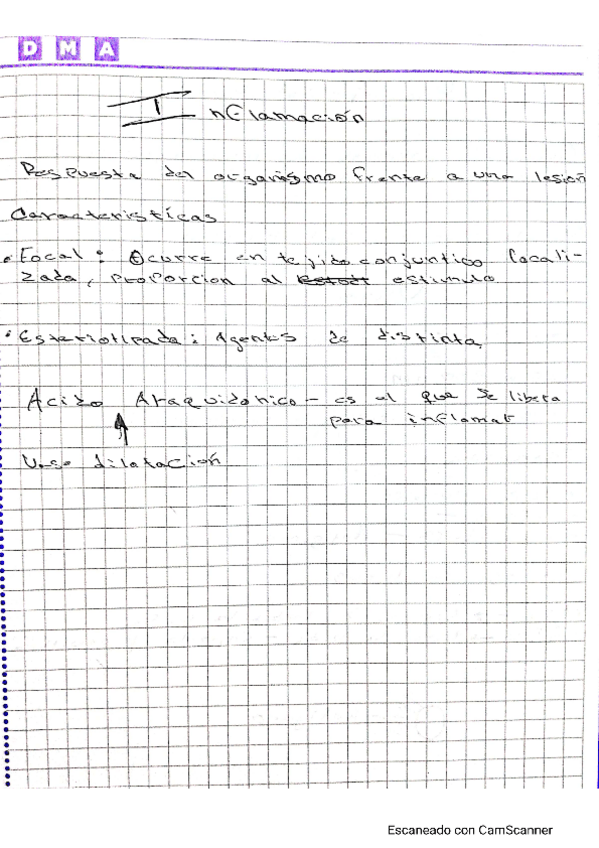 D M A
Inflamación
Respuesta del organismo frente a una lesión
Caracteristícas
• Focal: Ocurre en tejido conjuntico locali-
zada, proporcion al estimulo
• Esteriotipada: Agentes de distinta,
Acido Araquidonico - es el que se libera
para inflamar
Vaso dilatación
Escaneado con CamScanner